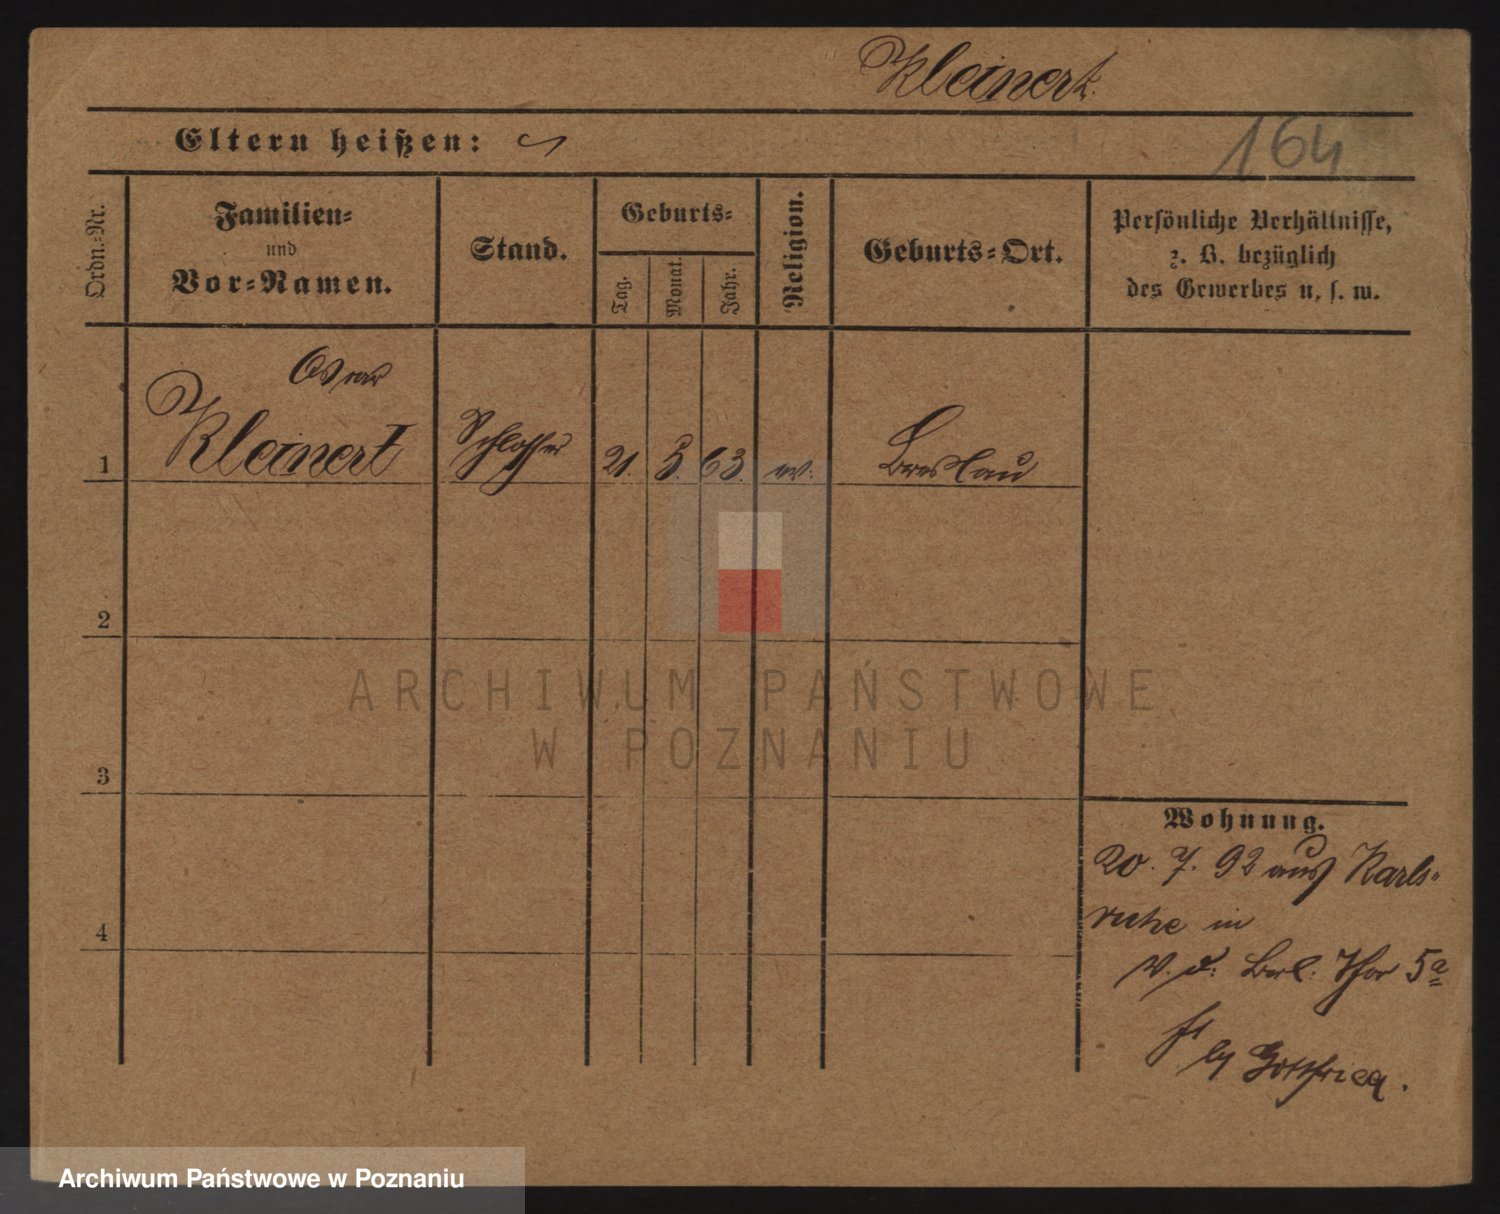 Kleinert.
164
Eltern heißen:
Ordn.-Nr.
Familien-
und
Vor-Namen.
Stand.
Geburts-
Tag.
Monat.
Jahr.
Religion.
Geburts-Ort.
Persönliche Verhältnisse,
z. B. bezüglich
des Gewerbes u. s. w.
Oscar
1 Kleinert Schlosser 21. 3. 63. ev. Breslau
2
3
4
ARCHIWUM PAŃSTWOWE
W POZNANIU
Wohnung.
20. 7. 92 aus Karls-
ruhe in
V. d. Berl. Thor 5a
by Gottfried.
Archiwum Państwowe w Poznaniu